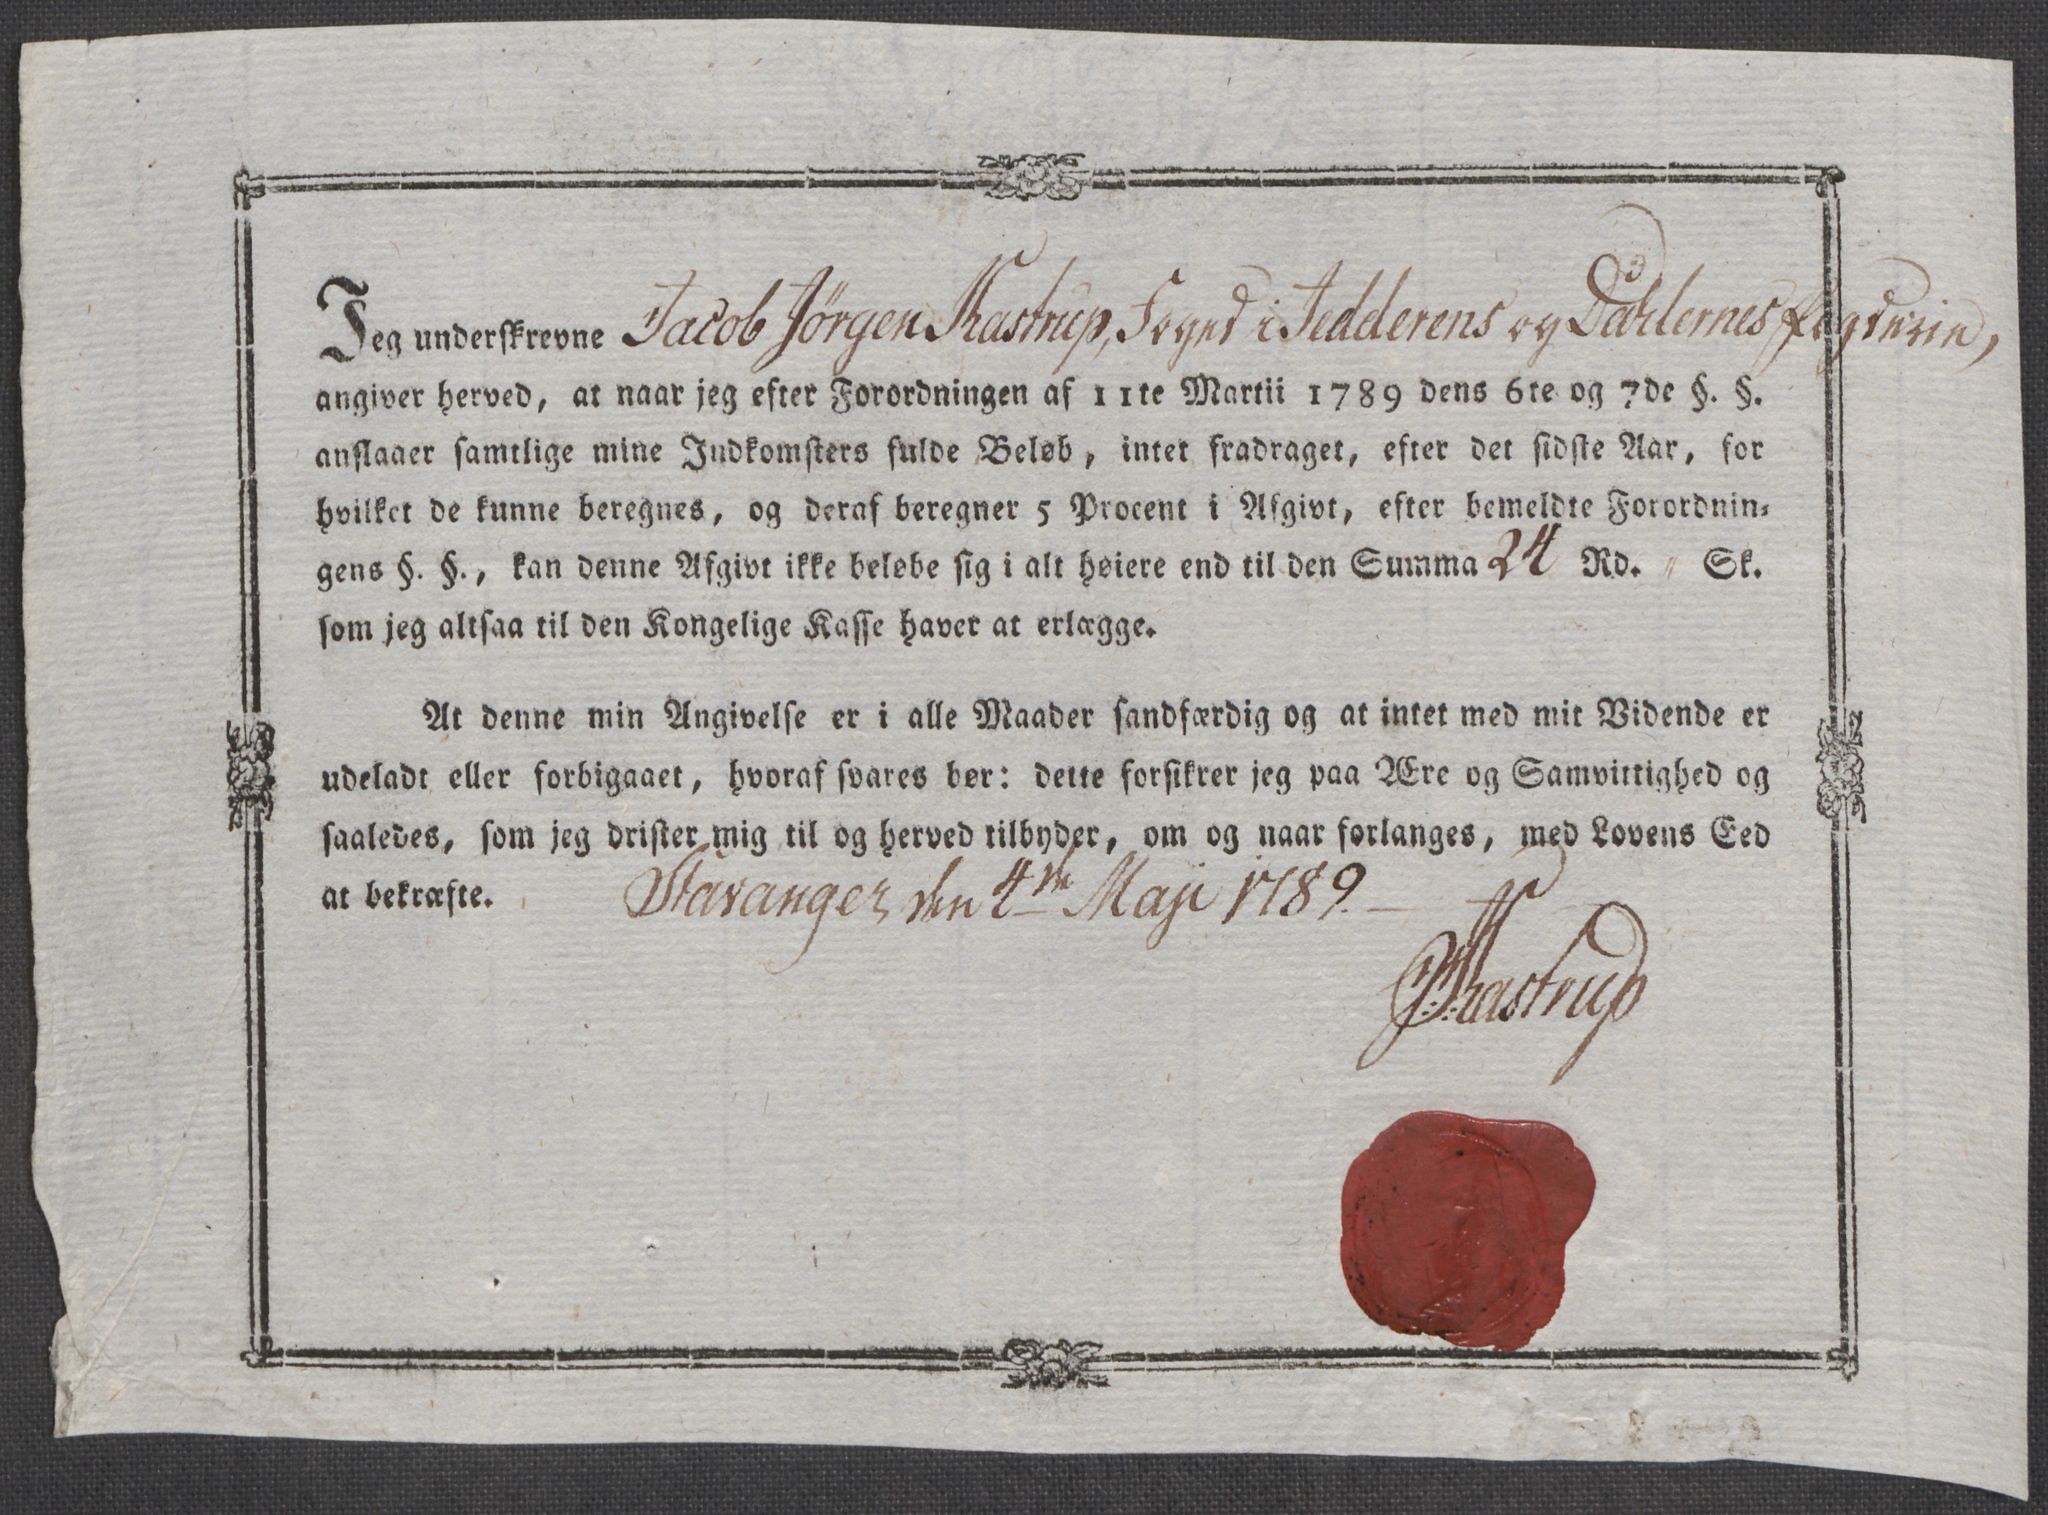 Jeg underskrevne Jacob Jörgen Kastrup, Foged i Jedderens og Dahlernes Fogderie,
angiver herved, at naar jeg efter Forordningen af 11te Martii 1789 dens 6te og 7de §. §.
anslaaer samtlige mine Indkomsters fulde Beløb, intet fradraget, efter det sidste Aar, for
hvilket de kunne beregnes, og deraf beregner 5 Procent i Afgivt, efter bemeldte Forordnin-
gens §. §., kan denne Afgivt ikke beløbe sig i alt høiere end til den Summa 24 Rd. " Sk.
som jeg altsaa til den Kongelige Kasse haver at erlægge.
At denne min Angivelse er i alle Maader sandfærdig og at intet med mit Vidende er
udeladt eller forbigaaet, hvoraf svares bør: dette forsikrer jeg paa Ære og Samvittighed og
saaledes, som jeg drister mig til og herved tilbyder, om og naar forlanges, med Lovens Eed
at bekræfte. Stavanger den 4de Maji 1789.
J: Kastrup